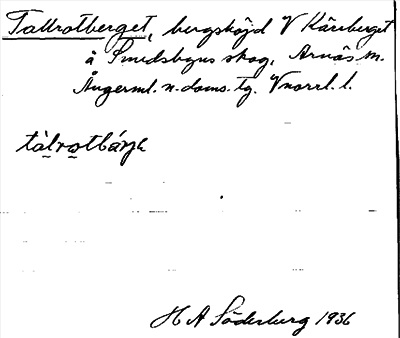 Tallrotberget, bergshöjd V Käreberget
å Smedsbyns skog, Arnäs sn.
Ångerml. n. doms. tg. Vnorrl. l.
tàlrotbárjə
H A Söderberg 1936